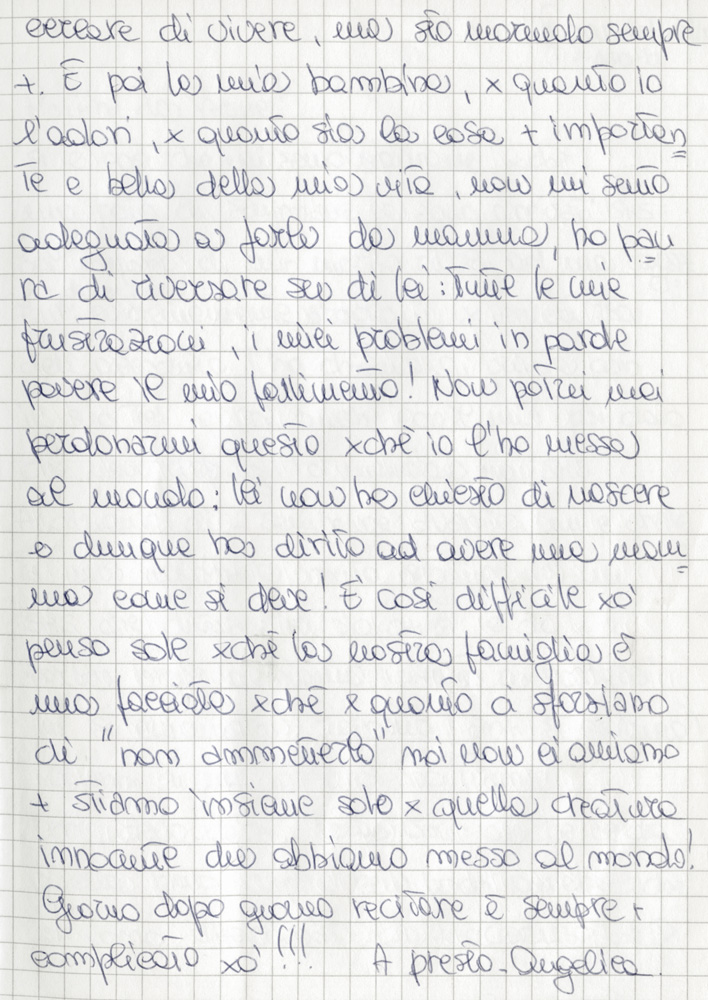 cercare di vivere, ma sto morendo sempre
+. E poi la mia bambina, x quanto io
l'adori, x quanto sia la cosa + importan
te e bella della mia vita, non mi sento
adeguata a farle da mamma, ho pau
ra di riversare su di lei: tutte le mie
frustrazioni, i miei problemi in parole
povere il mio fallimento! Non potrei mai
perdonarmi questo xchè io l'ho messa
al mondo; lei non ha chiesto di nascere
e dunque ha diritto ad avere una mam
ma come si deve! E' così difficile xò
penso solo xchè la nostra famiglia è
una facciata xchè x quanto ci sforziamo
di "non ammetterlo" noi non ci amiamo
+ stiamo insieme solo x quella creatura
innocente che abbiamo messo al mondo!
Giorno dopo giorno recitare è sempre +
complicato xò!!! A presto-Angelica.